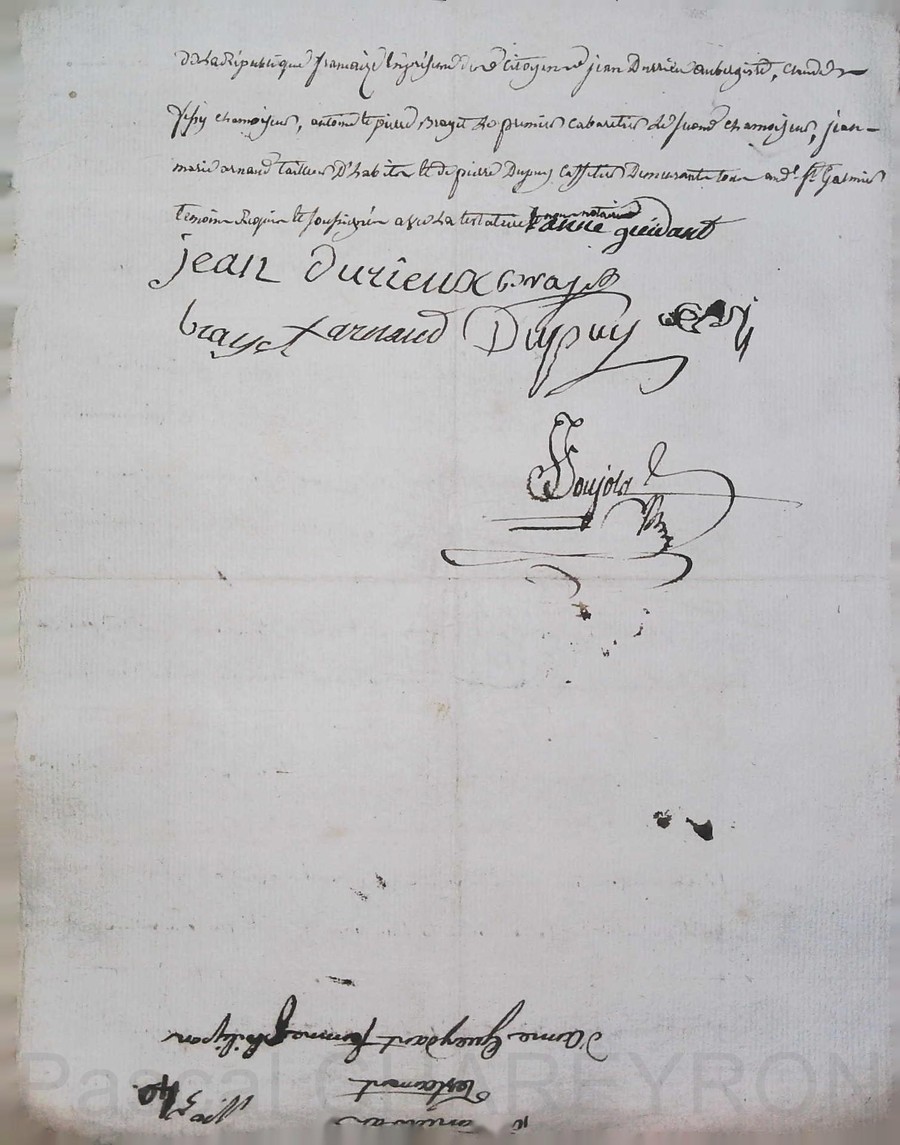 de la République francaize En présence des Citoyens jean Durrieu aubergiste, claude
chamoiseur, antoine et pierre Brayet le premier Cabaretier le second chamoiseur, jean-
marie arnaud tailleur D'habits et de pierre Dupuy Caffetier Demeurants tous St Galmier
témoins Requis et soussignés avec la testatrice nous notaire
anne guédant
jean durîeux brayet
brayet arnaud Dupuy
Soujols
d'anne Gueydant femme philipon
Testament
40
Pascal CHAREYRON